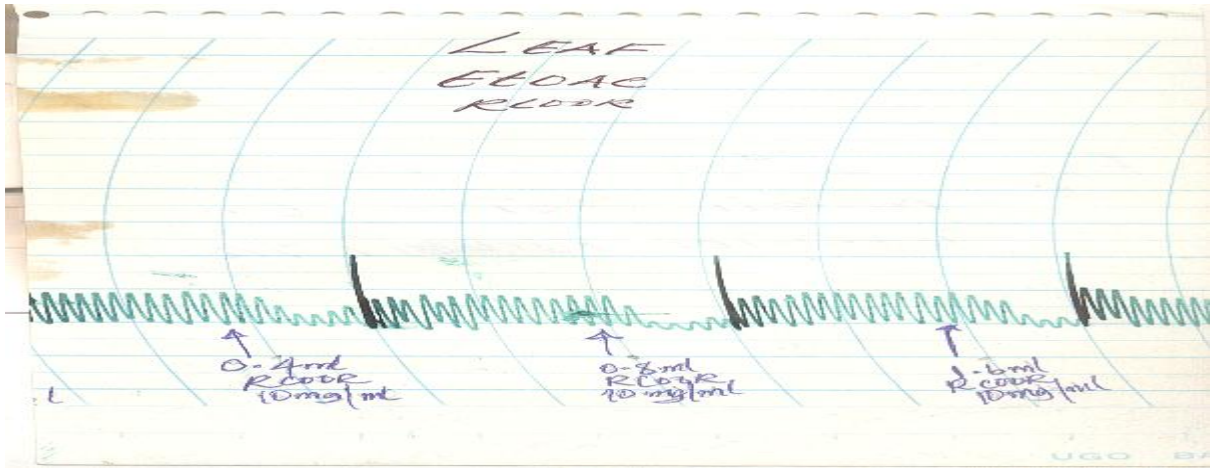 LEAF
EtOAC
RCOOR
0.4ml
RCOOR
10mg/ml
0-8ml
RCOOR
10mg/ml
1.6ml
RCOOR
10mg/ml
L
UGO BA